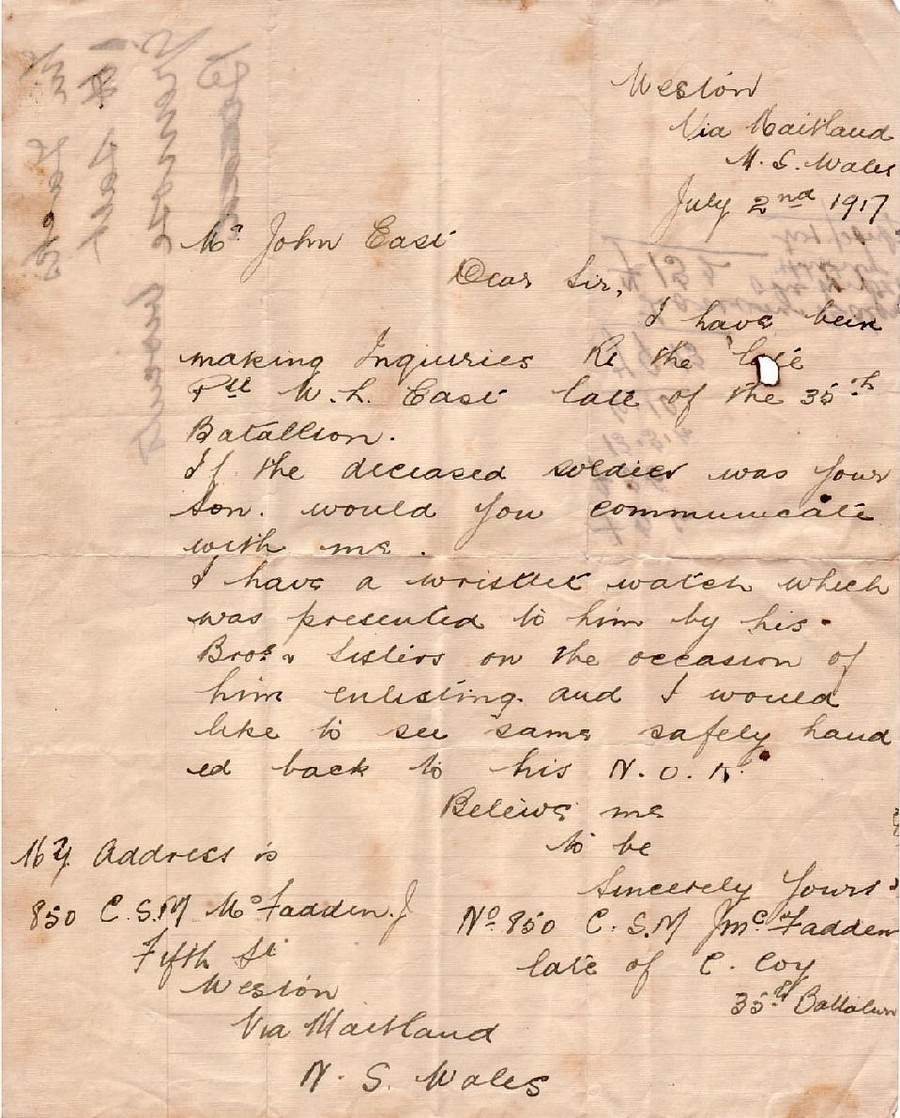 Weston
Via Maitland
N. S. Wales
July 2nd 1917
Mr John East
Dear Sir,
I have been
making Inquiries Re the late
Pte W. L. East late of the 35th
Batallion.
If the deceased soldier was your
son. would you communicate
with me.
I have a wristlet watch which
was presented to him by his
Bros & Sisters on the occasion of
him enlisting and I would
like to see same safely hand
ed back to his N. O. K.
Beleive me
to be
Sincerely Yours
No 850 C. S. M J Mc Fadden
late of C. Coy
35th Battalion
My Address is
850 C. S. M Mc Fadden. J
Fifth St
Weston
Via Maitland
N. S. Wales